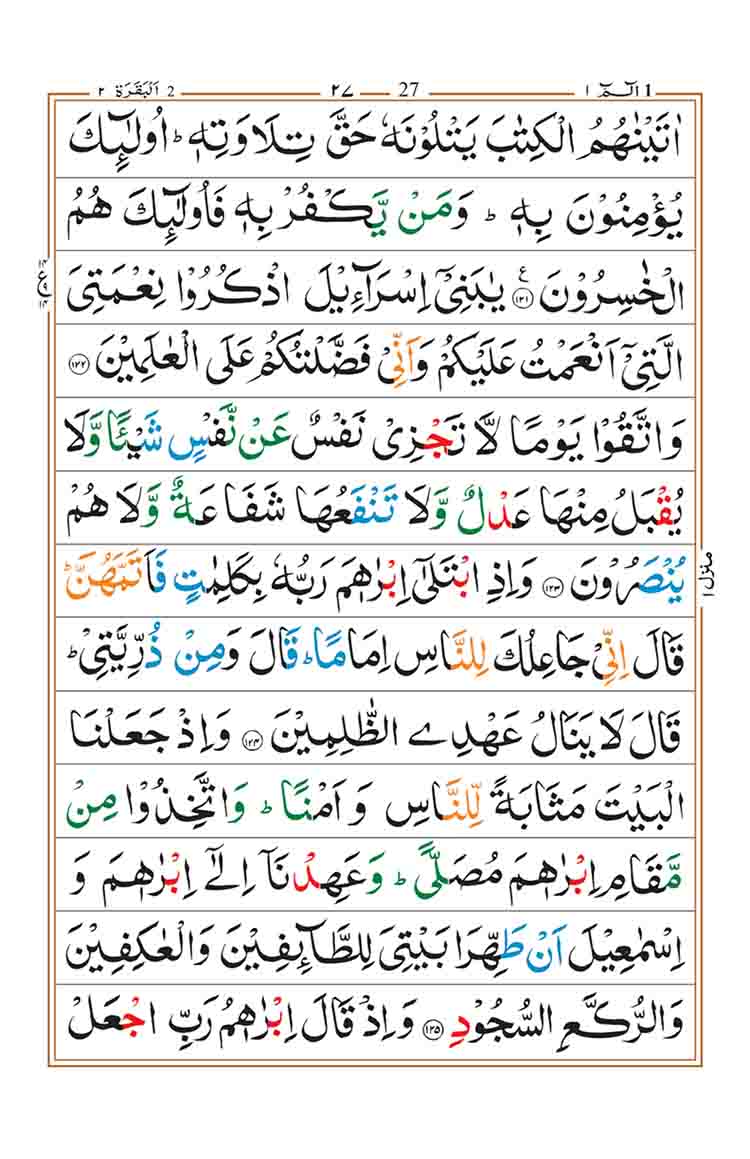 1 الٓمّٓ ١ 27 ٢٧ 2 اَلْبَقَرَة ٢
اٰتَيْنٰهُمُ الْكِتٰبَ يَتْلُوْنَهٗ حَقَّ تِلَاوَتِهٖ ؕ اُولٰٓئِكَ
يُؤْمِنُوْنَ بِهٖ ؕ وَمَنْ يَّكْفُرْ بِهٖ فَاُولٰٓئِكَ هُمُ
الْخٰسِرُوْنَ ۧ ﴿۱۲۱﴾ يٰبَنِيْٓ اِسْرَآءِيْلَ اذْكُرُوْا نِعْمَتِيَ
ع ۱۴ ۹ ۱۴
الَّتِيْٓ اَنْعَمْتُ عَلَيْكُمْ وَاَنِّيْ فَضَّلْتُكُمْ عَلَى الْعٰلَمِيْنَ ﴿۱۲۲﴾
وَاتَّقُوْا يَوْمًا لَّا تَجْزِيْ نَفْسٌ عَنْ نَّفْسٍ شَيْـًٔا وَّلَا
يُقْبَلُ مِنْهَا عَدْلٌ وَّلَا تَنْفَعُهَا شَفَاعَةٌ وَّلَا هُمْ
يُنْصَرُوْنَ ﴿۱۲۳﴾ وَاِذِ ابْتَلٰٓى اِبْرٰهٖمَ رَبُّهٗ بِكَلِمٰتٍ فَاَتَمَّهُنَّ ؕ
منزل ١
قَالَ اِنِّيْ جَاعِلُكَ لِلنَّاسِ اِمَامًا ؕ قَالَ وَمِنْ ذُرِّيَّتِيْ ؕ
قَالَ لَا يَنَالُ عَهْدِي الظّٰلِمِيْنَ ﴿۱۲۴﴾ وَاِذْ جَعَلْنَا
الْبَيْتَ مَثَابَةً لِّلنَّاسِ وَاَمْنًا ؕ وَاتَّخِذُوْا مِنْ
مَّقَامِ اِبْرٰهٖمَ مُصَلًّى ؕ وَعَهِدْنَآ اِلٰٓى اِبْرٰهٖمَ وَ
اِسْمٰعِيْلَ اَنْ طَهِّرَا بَيْتِيَ لِلطَّآئِفِيْنَ وَالْعٰكِفِيْنَ
وَالرُّكَّعِ السُّجُوْدِ ﴿۱۲۵﴾ وَاِذْ قَالَ اِبْرٰهٖمُ رَبِّ اجْعَلْ